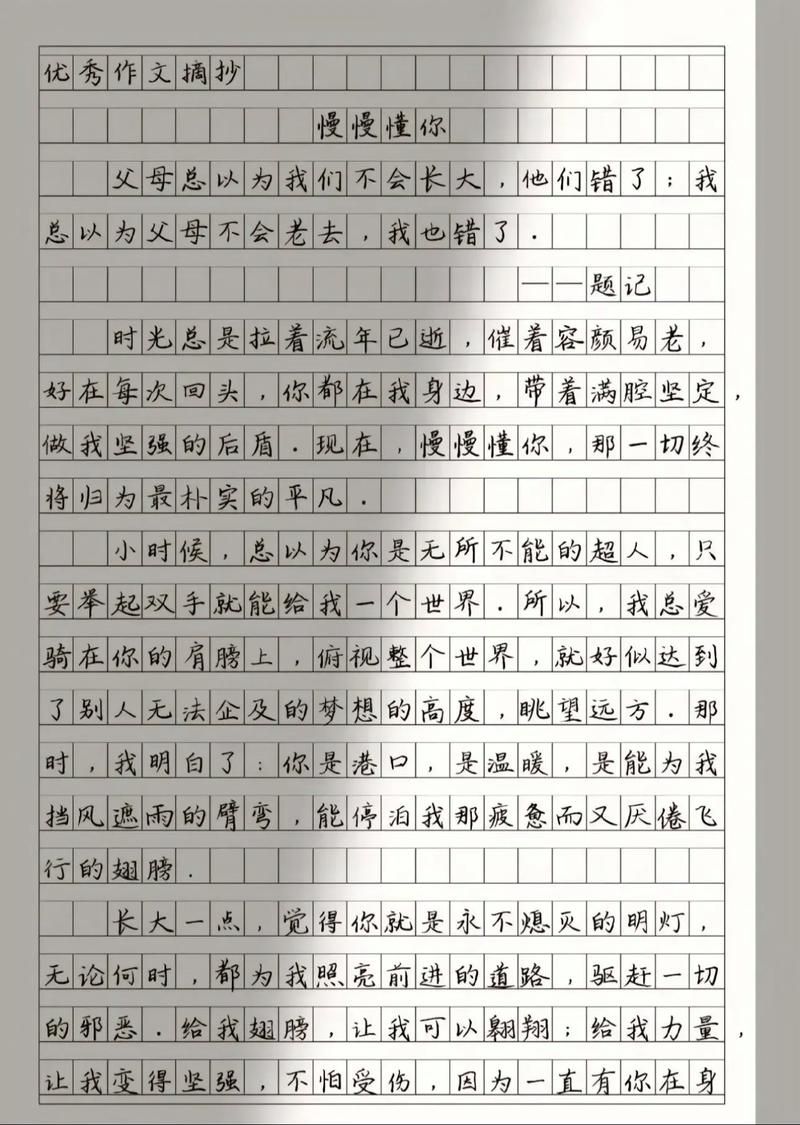 优秀作文摘抄
慢慢懂你
父母总以为我们不会长大，他们错了；我
总以为父母不会老去，我也错了．
——题记
时光总是拉着流年已逝，催着容颜易老，
好在每次回头，你都在我身边，带着满腔坚定，
做我坚强的后盾．现在，慢慢懂你，那一切终
将归为最朴实的平凡．
小时候，总以为你是无所不能的超人，只
要举起双手就能给我一个世界．所以，我总爱
骑在你的肩膀上，俯视整个世界，就好似达到
了别人无法企及的梦想的高度，眺望远方．那
时，我明白了：你是港口，是温暖，是能为我
挡风遮雨的臂弯，能停泊我那疲惫而又厌倦飞
行的翅膀．
长大一点，觉得你就是永不熄灭的明灯，
无论何时，都为我照亮前进的道路，驱赶一切
的邪恶．给我翅膀，让我可以翱翔；给我力量，
让我变得坚强，不怕受伤，因为一直有你在身